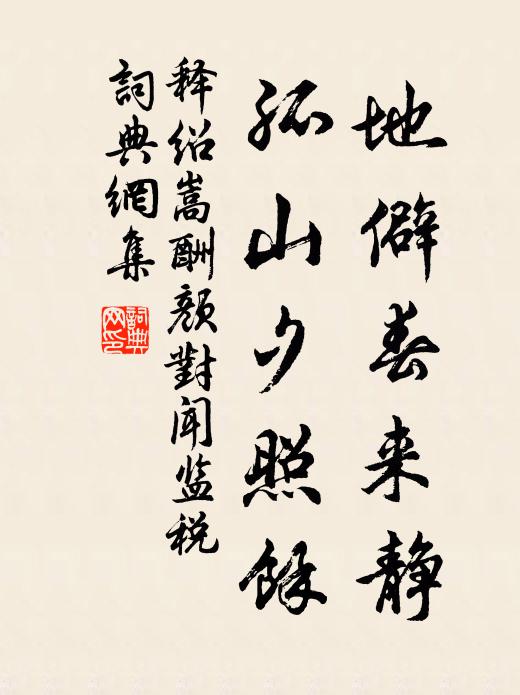 地僻春来静
孤山夕照餘
释绍嵩酬颜對闻监税
詞典網集
詞典
网印